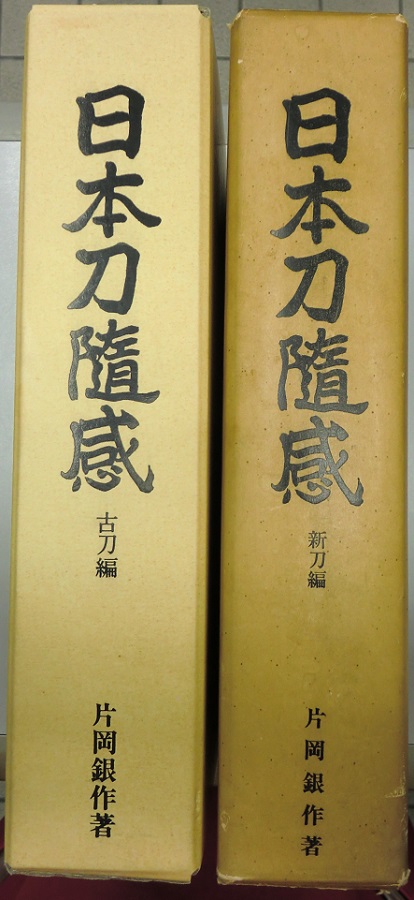 日本刀隨感
古刀編
片岡銀作著
日本刀隨感
新刀編
片岡銀作著